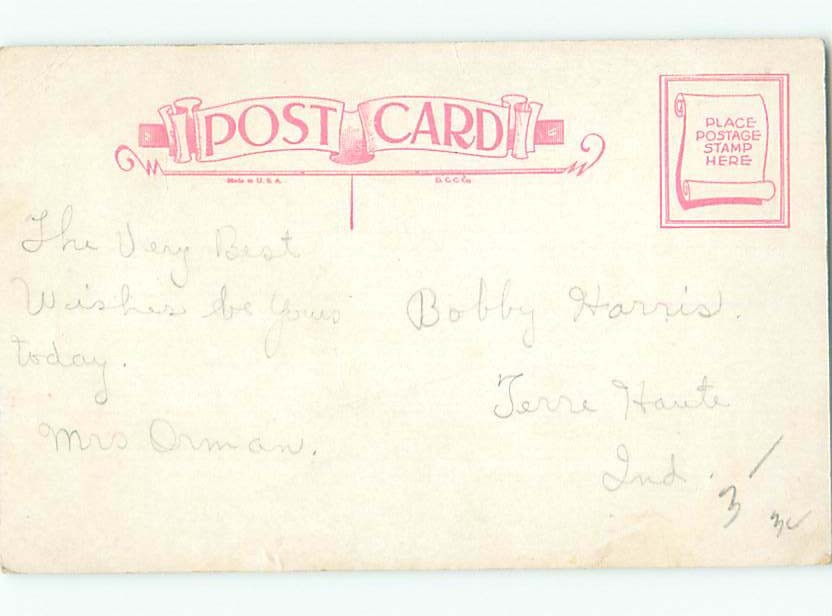 POST CARD
PLACE
POSTAGE
STAMP
HERE
Made in U.S.A.
D.C.Co
The Very Best
Wishes be Yours
today.
Mrs Orman.
Bobby Harris.
Terre Haute
Ind.
3